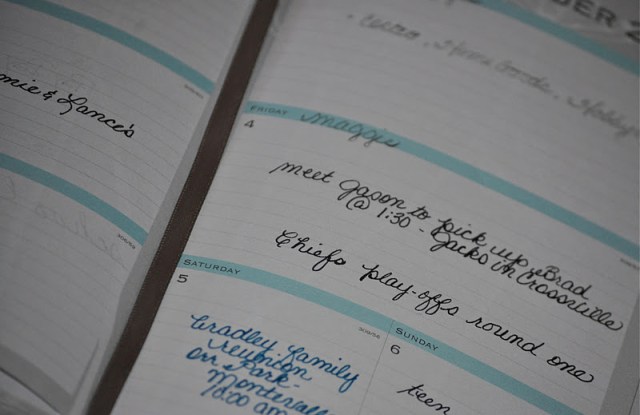 mie & Lance's
BER 2
FRIDAY
4
maggie
meet Jason to pick up Brad
@ 1:30 - Jacks in Crossville
Chiefs play-offs round one
SATURDAY
5
Bradley family
reunion
Park-
10:00 am
SUNDAY
6
teen